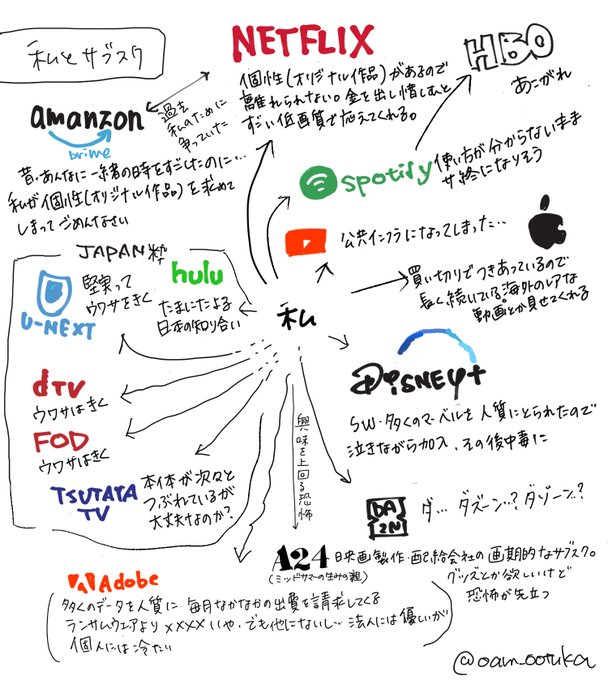 私とサブスク
NETFLIX
個性(オリジナル作品)があるので
離れられない。金を出し惜しむと
ずるい低画質で応えてくれる。
HBO
あこがれ
amanzon
prime
過去
私のために
争っていた
昔、あんなに一緒の時をすごしたのに…
私が個性(オリジナル作品)を求めて
しまってごめんなさい
spotify
使い方が分からないまま
サ終になりそう
公共インフラになってしまった…
買い切りでつきあっているので
長く続いている。海外のレアな
動画とか見せてくれる
JAPAN粋
U-NEXT
堅実って
ウワサをきく
hulu
たまにたよる
日本の知り合い
私
dTV
ウワサはきく
FOD
ウワサはきく
TSUTATA
TV
本体が次々と
つぶれているが
大丈夫なのか?
興味を上回る恐怖
DiSNEY+
SW・多くのマーベルを人質にとられたので
泣きながら加入、その後中毒に
DA
ZN
ダ…ダズーン…?ダゾーン?
A24
(ミッドサマーの生みの親)
映画製作・配給会社の画期的なサブスク。
グッズとか欲しいけど
恐怖が先立つ
Adobe
多くのデータを人質に毎月なかなかの出費を請求してくる
ランサムウェアより××××いや、でも他にないし…法人には優しいが
個人には冷たい